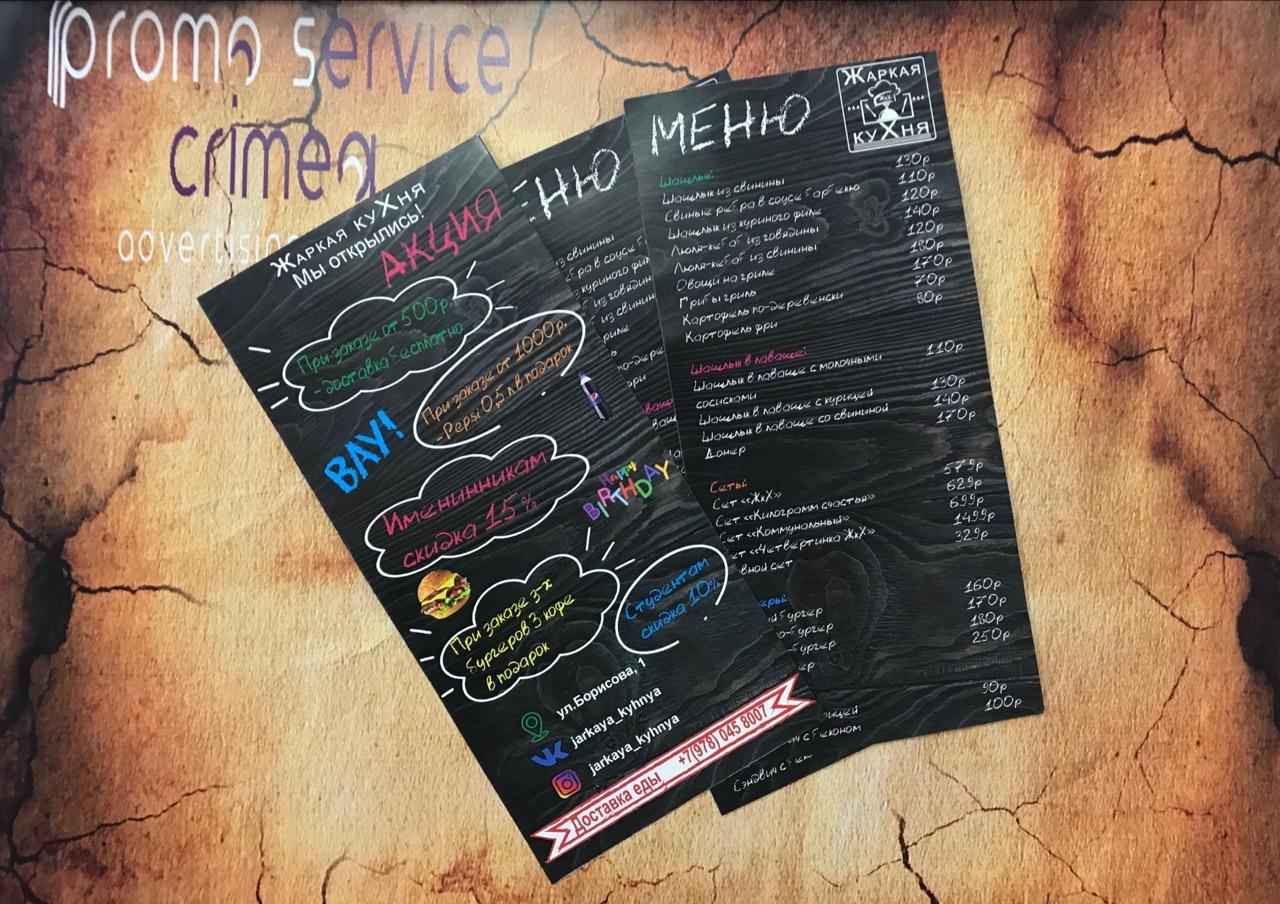 promo service
crimea
advertising
ЖАРКАЯ КУХНЯ
Мы открылись!
АКЦИЯ
При заказе от 500р.
-доставка бесплатно
При заказе от 1000р.
-Pepsi 0,5 л в подарок
ВАУ!
Именинникам
скидка 15%
Happy
BIRTHDAY
При заказе 3-х
бургеров 3 кофе
в подарок
Студентам
скидка 10%
ул.Борисова, 1
jarkaya_kyhnya
jarkaya_kyhnya
Доставка еды +7(978) 045 8007
ЕНЮ
МЕНЮ
ЖАРКАЯ
КУХНЯ
Шашлык:
Шашлык из свинины 130р
Свиные ребра в соусе барбекю 110р
Шашлык из куриного филе 120р
Люля-кебаб из говядины 140р
Люля-кебаб из свинины 120р
Овощи на гриле 180р
Грибы гриль 170р
Картофель по-деревенски 70р
Картофель фри 80р
Шашлык в лаваше:
Шашлык в лаваше с молочными 110р
сосисками
Шашлык в лаваше с курицей 130р
Шашлык в лаваше со свининой 140р
Донер 170р
Сеты:
Сет «ЖкХ» 579р
Сет «Килограмм счастья» 629р
Сет «Коммунальный» 699р
Сет «Четвертинка ЖкХ» 1499р
вной сет 329р
160р
бургер 170р
о-бургер 180р
250р
90р
рицей 100р
с беконом
Сэндвич с